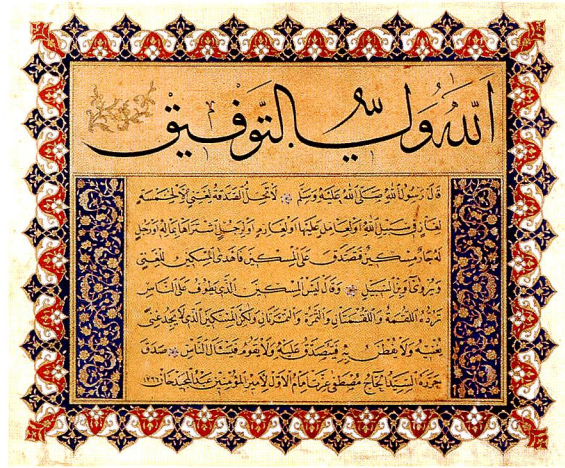 اَللّٰهُ وَلِيُّ التَّوْفِيقْ
قَالَ رَسُولُ اللّٰهِ صَلَّى اللّٰهُ عَلَيْهِ وَسَلَّمَ لَا تَحِلُّ الصَّدَقَةُ لِغَنِيٍّ اِلَّا لِخَمْسَةٍ
لِغَازٍ فِي سَبِيلِ اللّٰهِ اَوْ لِعَامِلٍ عَلَيْهَا اَوْ لِغَارِمٍ اَوْ لِرَجُلٍ اشْتَرَاهَا بِمَالِهِ اَوْ رَجُلٍ
لَهُ جَارٌ مِسْكِينٌ فَتَصَدَّقَ عَلَى الْمِسْكِينِ فَاَهْدَى الْمِسْكِينُ لِلْغَنِيِّ
وَيُرْوَى اَوِ ابْنِ السَّبِيلِ وَقَالَ لَيْسَ الْمِسْكِينُ الَّذِي يَطُوفُ عَلَى النَّاسِ
تَرُدُّهُ اللُّقْمَةُ وَاللُّقْمَتَانِ وَالتَّمْرَةُ وَالتَّمْرَتَانِ وَلٰكِنَّ الْمِسْكِينَ الَّذِي لَا يَجِدُ غِنًى
يُغْنِيهِ وَلَا يُفْطَنُ بِهِ فَيُتَصَدَّقُ عَلَيْهِ وَلَا يَقُومُ فَيَسْأَلُ النَّاسَ صَدَقَ
حَرَّرَهُ السَّيِّدُ الْحَاجُّ مُصْطَفٰى عِزَّتْ اِمَامُ الْاَوَّلِ لِاَمِيرِ الْمُؤْمِنِينَ عَبْدُ الْمَجِيدْ خَانْ